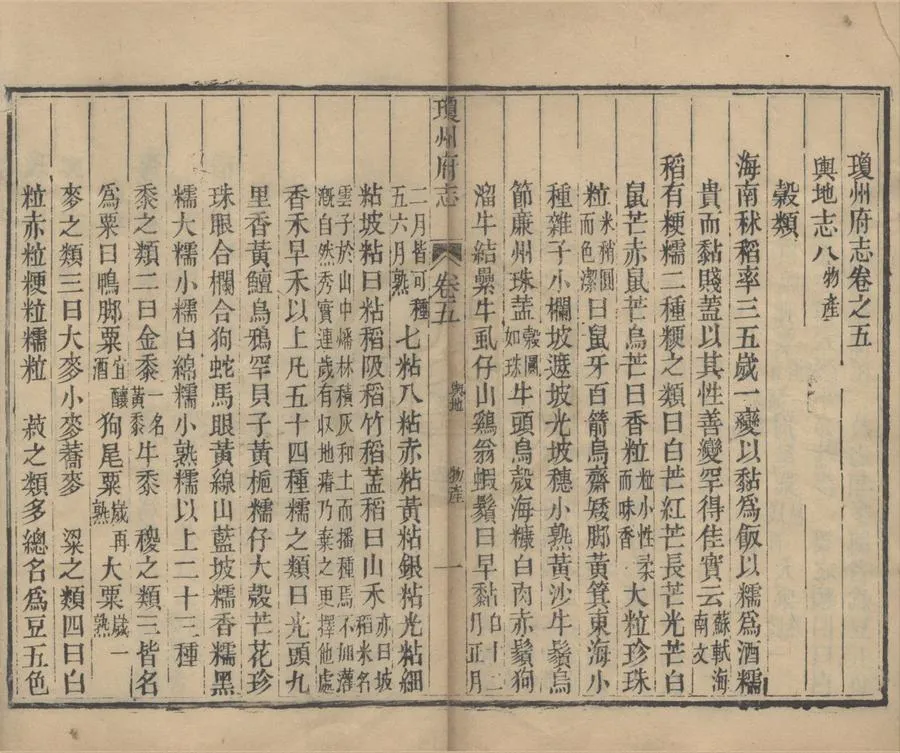 瓊州府志卷之五
輿地志八物產
穀類
海南秫稻率三五歲一變以黏爲飯以糯爲酒糯
貴而黏賤蓋以其性善變罕得佳實云蘇軾海南文
稻有粳糯二種粳之類曰白芒紅芒長芒光芒白
鼠芒赤鼠芒烏芒曰香粒粒小性柔而味香大粒珍珠
粒米稍圓而色潔曰鼠牙百箭烏齋矮脚黃箕東海小
種雜子小欄坡遮坡光坡穗小熟黃沙牛鬚烏
節廉州珠蓋穀圓如珠牛頭烏殼海糠白肉赤鬚狗
溜牛結纍牛虱仔山鷄翁蝦鬚曰早黏自十二月正月
瓊州府志 卷五 輿地 物產 一
二月皆可種五六月熟七粘八粘赤粘黃粘銀粘光粘細
粘坡粘曰粘稻阪稻竹稻蓋稻曰山禾亦曰坡稻米名
雲子於山中燔林積灰和土而播種焉不加灌
溉自然秀實連歲有収地瘠乃棄之更擇他處
香禾早禾以上凡五十四種糯之類曰光頭九
里香黃鱣烏鴉罕貝子黃梔糯仔大殼芒花珍
珠眼合欄合狗蛇馬眼黃線山藍坡糯香糯黑
糯大糯小糯白綿糯小熟糯以上二十三種
黍之類二曰金黍一名黃黍牛黍 稷之類三皆名
爲粟曰鴨脚粟宜釀酒狗尾粟歲再熟大粟歲一熟
麥之類三曰大麥小麥蕎麥 粱之類四曰白
粒赤粒粳粒糯粒 菽之類多總名爲豆五色